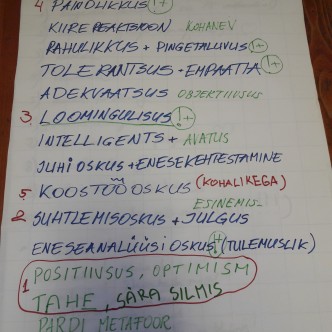 4 PAINDLIKKUS 1+
KIIRE REAKTSIOON KOHANEV
RAHULIKKUS + PINGETALUVUS 1+
TOLERANTSUS - EMPAATIA 1+
ADEKVAATSUS OBJEKTIIVSUS
3. LOOMINGULISUS 1+
INTELLIGENTS + AVATUS
JUHIOSKUS + ENESEKEHTESTAMINE
5. KOOSTÖÖOSKUS (KOHALIKEGA)
ESINEMIS-
2. SUHTLEMISOSKUS + JULGUS
ENESEANALÜÜSI OSKUS (TULEMUSLIK)
1 POSITIIVSUS, OPTIMISM
TAHE, SÄRA SILMIS
PARDI METAFOOR